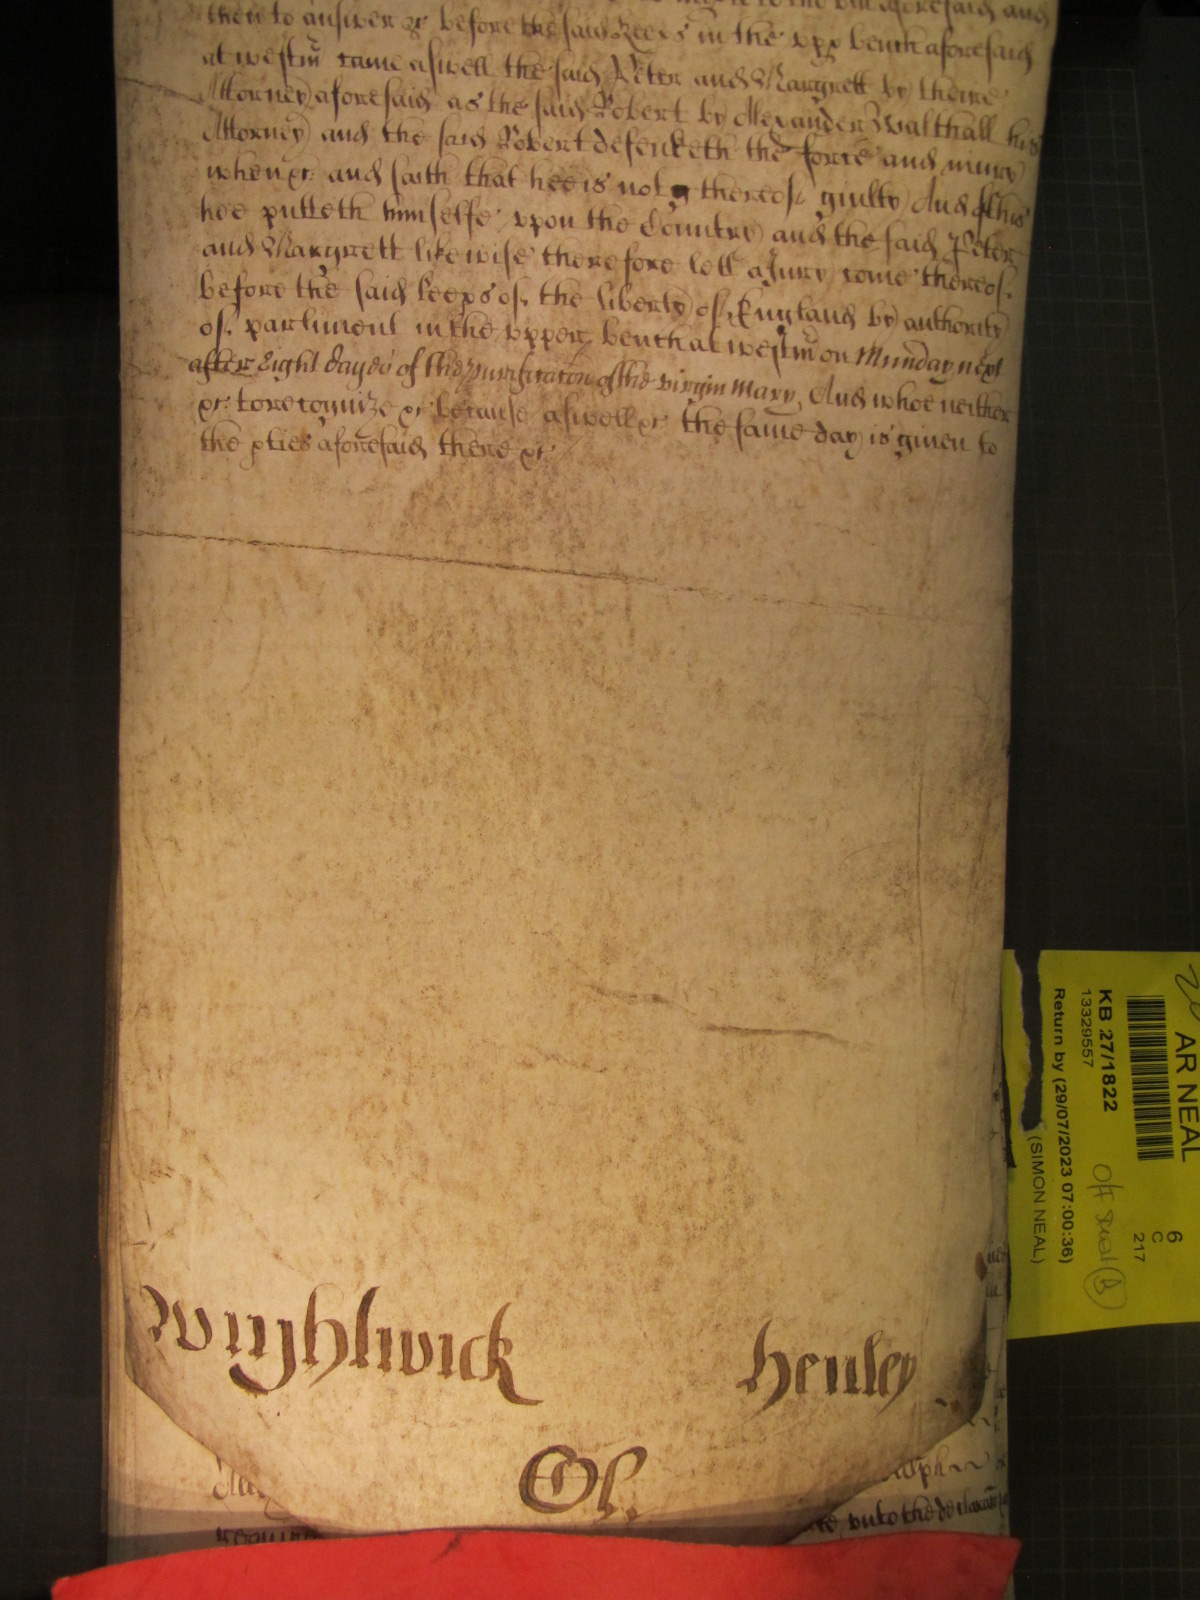 the bill aforesaid and
then to answer &c before the said Keeps in the upp bench aforesaid
at westm came aswell the said Peter and Margrett by theire
Attorney aforesaid as the said Robert by Alexander Walthall his
Attorney and the said Robert defendeth the force and iniury
when &c and saith that hee is not thereof guilty And of this
hee putteth himselfe upon the Country and the said Peter
and Margrett likewise therefore lett a Jury come thereof
before the said keeps of the liberty of England by authority
of parliment in the upper bench at westm on Munday next
after Eight dayes of the purificaton of the virgin Mary, And whoe neither
&c to recognize &c because aswell &c the same day is given to
the pties aforesaid there &c
Wightwick Henley
Ol.
unto the declaracon
AR NEAL
KB 27/1822
13329557
Return by (29/07/2023 07:00:36)
(SIMON NEAL)
6
C
217